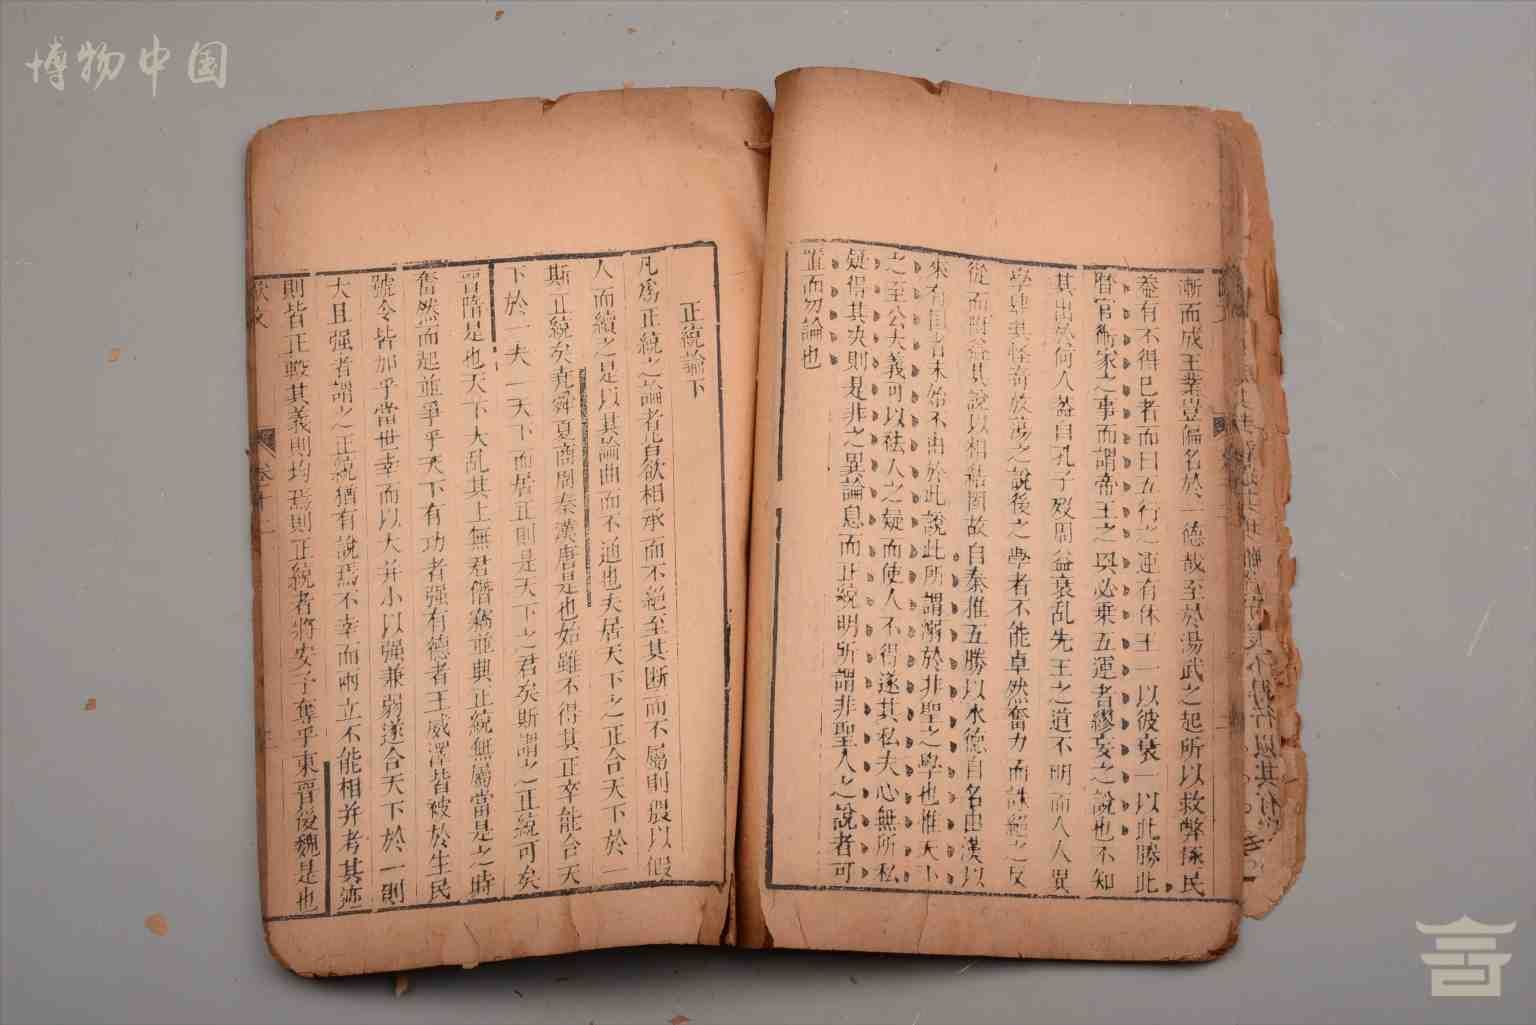 博物中国
漸而成王業豈偏名於一德哉至於湯武之起所以救弊拯民
蓋有不得已者而曰五行之運有休王一以彼衰一以此勝此
曆官術家之事而謂帝王之興必乘五運者繆妄之說也不知
其出於何人蓋自孔子歿周益衰乱先王之道不明而人人異
學肆其怪奇放蕩之說後之學者不能卓然奮力而誅絕之反
從而附益其說以相結固故自秦推五勝以水德自名由漢以
來有國者未始不由於此說此所謂溺於非聖之學也惟天下
之至公大義可以祛人之疑而使人不得遂其私夫心無所私
疑得其决則是非之異論息而正統明所謂非聖人之說者可
置而勿論也
正統論下
凡為正統之論者皆欲相承而不絕至其断而不屬則猥以假
人而續之是以其論曲而不通也夫居天下之正合天下於一
斯正統矣堯舜夏商周秦漢唐是也始雖不得其正卒能合天
下於一夫一天下而居正則是天下之君矣斯謂之正統可矣
晋隋是也天下大乱其上無君僭竊並興正統無屬當是之時
奮然而起並爭乎天下有功者强有德者王威澤皆被於生民
號令皆加乎當世幸而以大并小以强兼弱遂合天下於一則
大且强者謂之正統猶有說焉不幸而兩立不能相并考其迹
則皆正較其義則均焉則正統者將安予奪乎東晋後魏是也